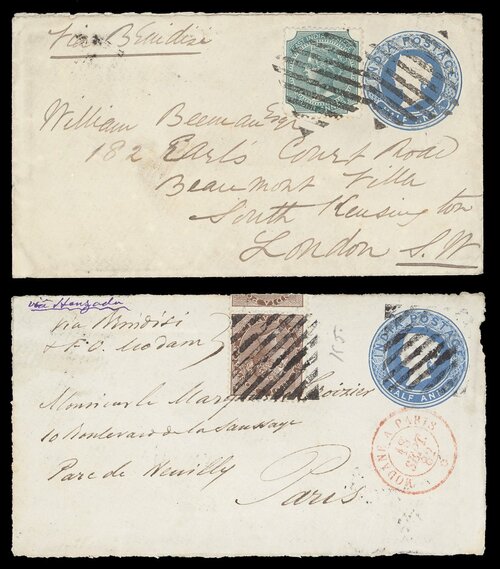 Via Brindisi
INDIA POSTAGE
HALF ANNA
William Beeman Esqr
182 Earl's Court Road
Beaumont Villa
South Kensington
London S.W
via Henzada
via Brindisi
& F. O. Modam
K5.
INDIA POSTAGE
HALF ANNA
Monsieur le Marquis
10 Boulevard de la Saussaye
Parc de Neuilly
Paris
MODANE A PARIS